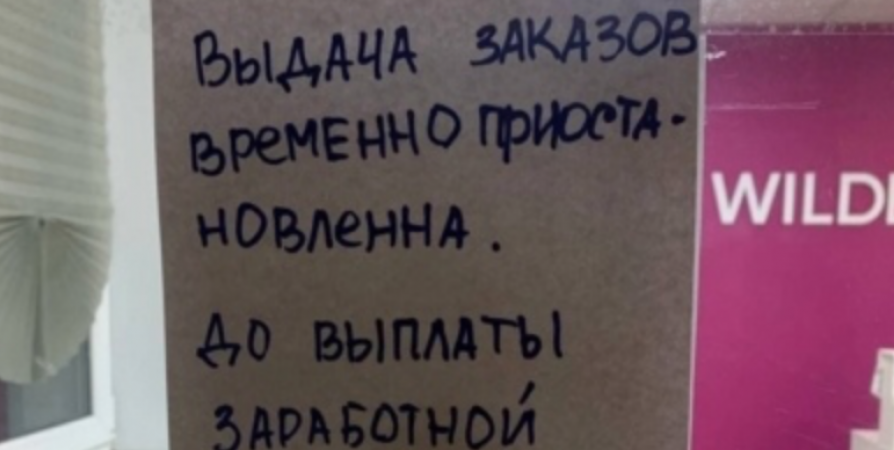 ВЫДАЧА ЗАКАЗОВ
ВРеМЕННО ПРИОСТА-
НОВЛеННА.
ДО ВЫПЛАТЫ
ЗАРАБОТНОЙ